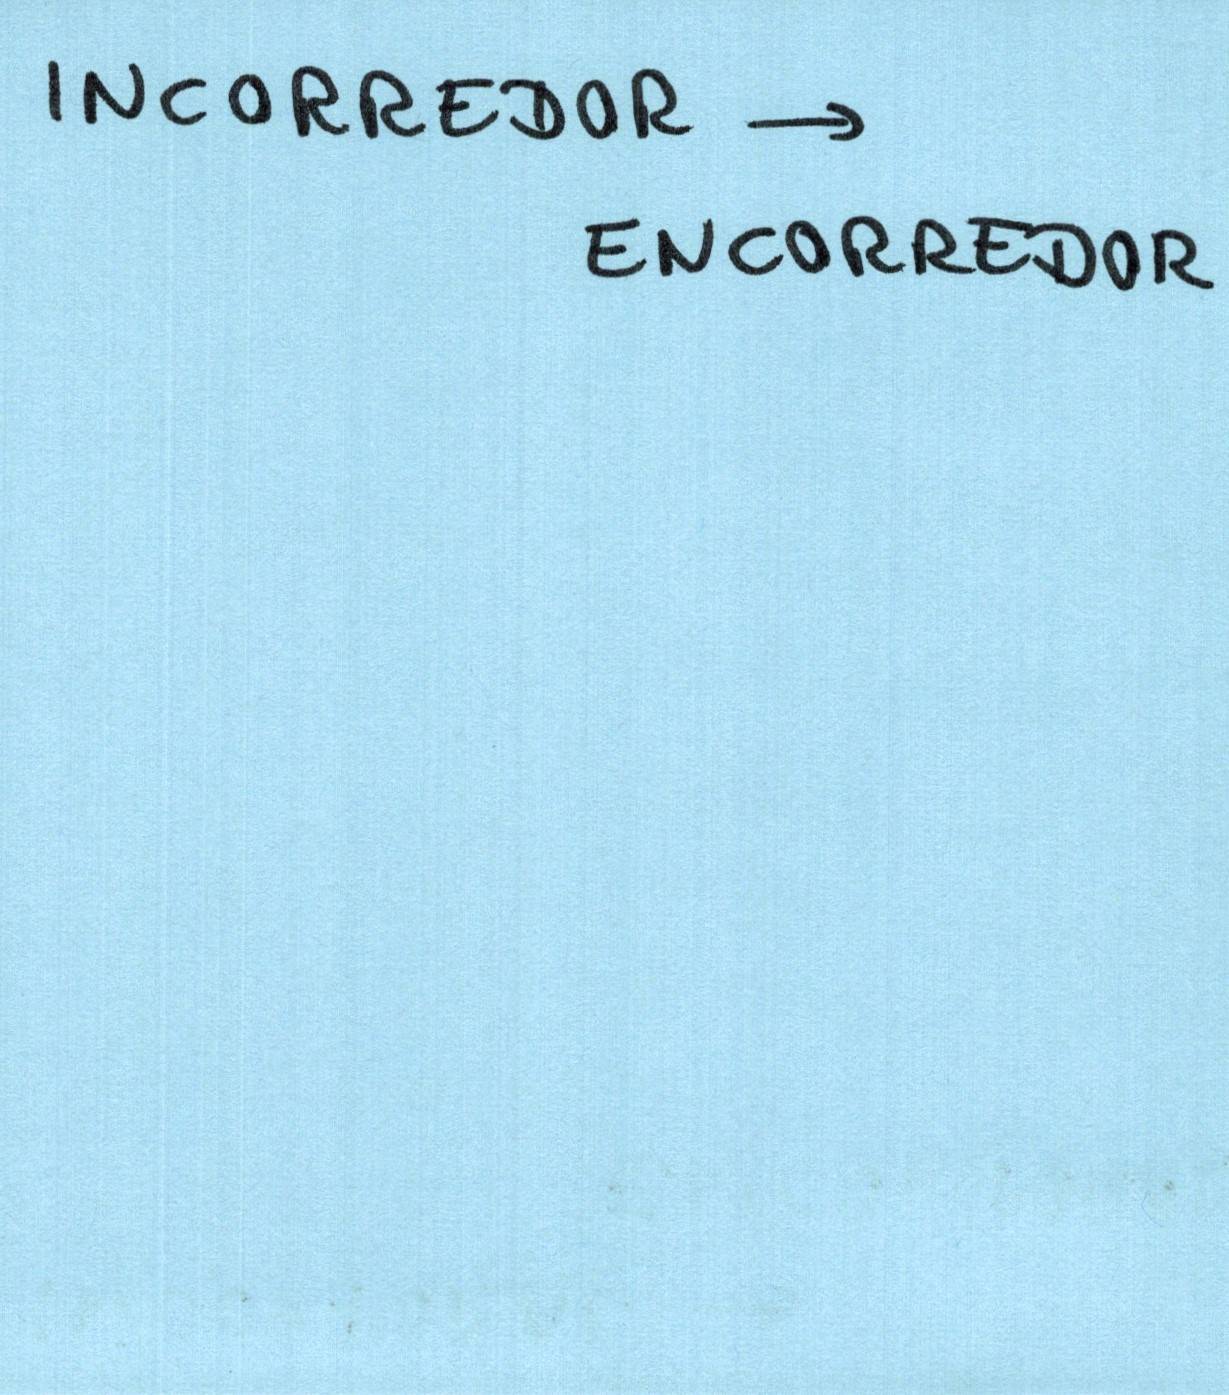 INCORREDOR →
ENCORREDOR